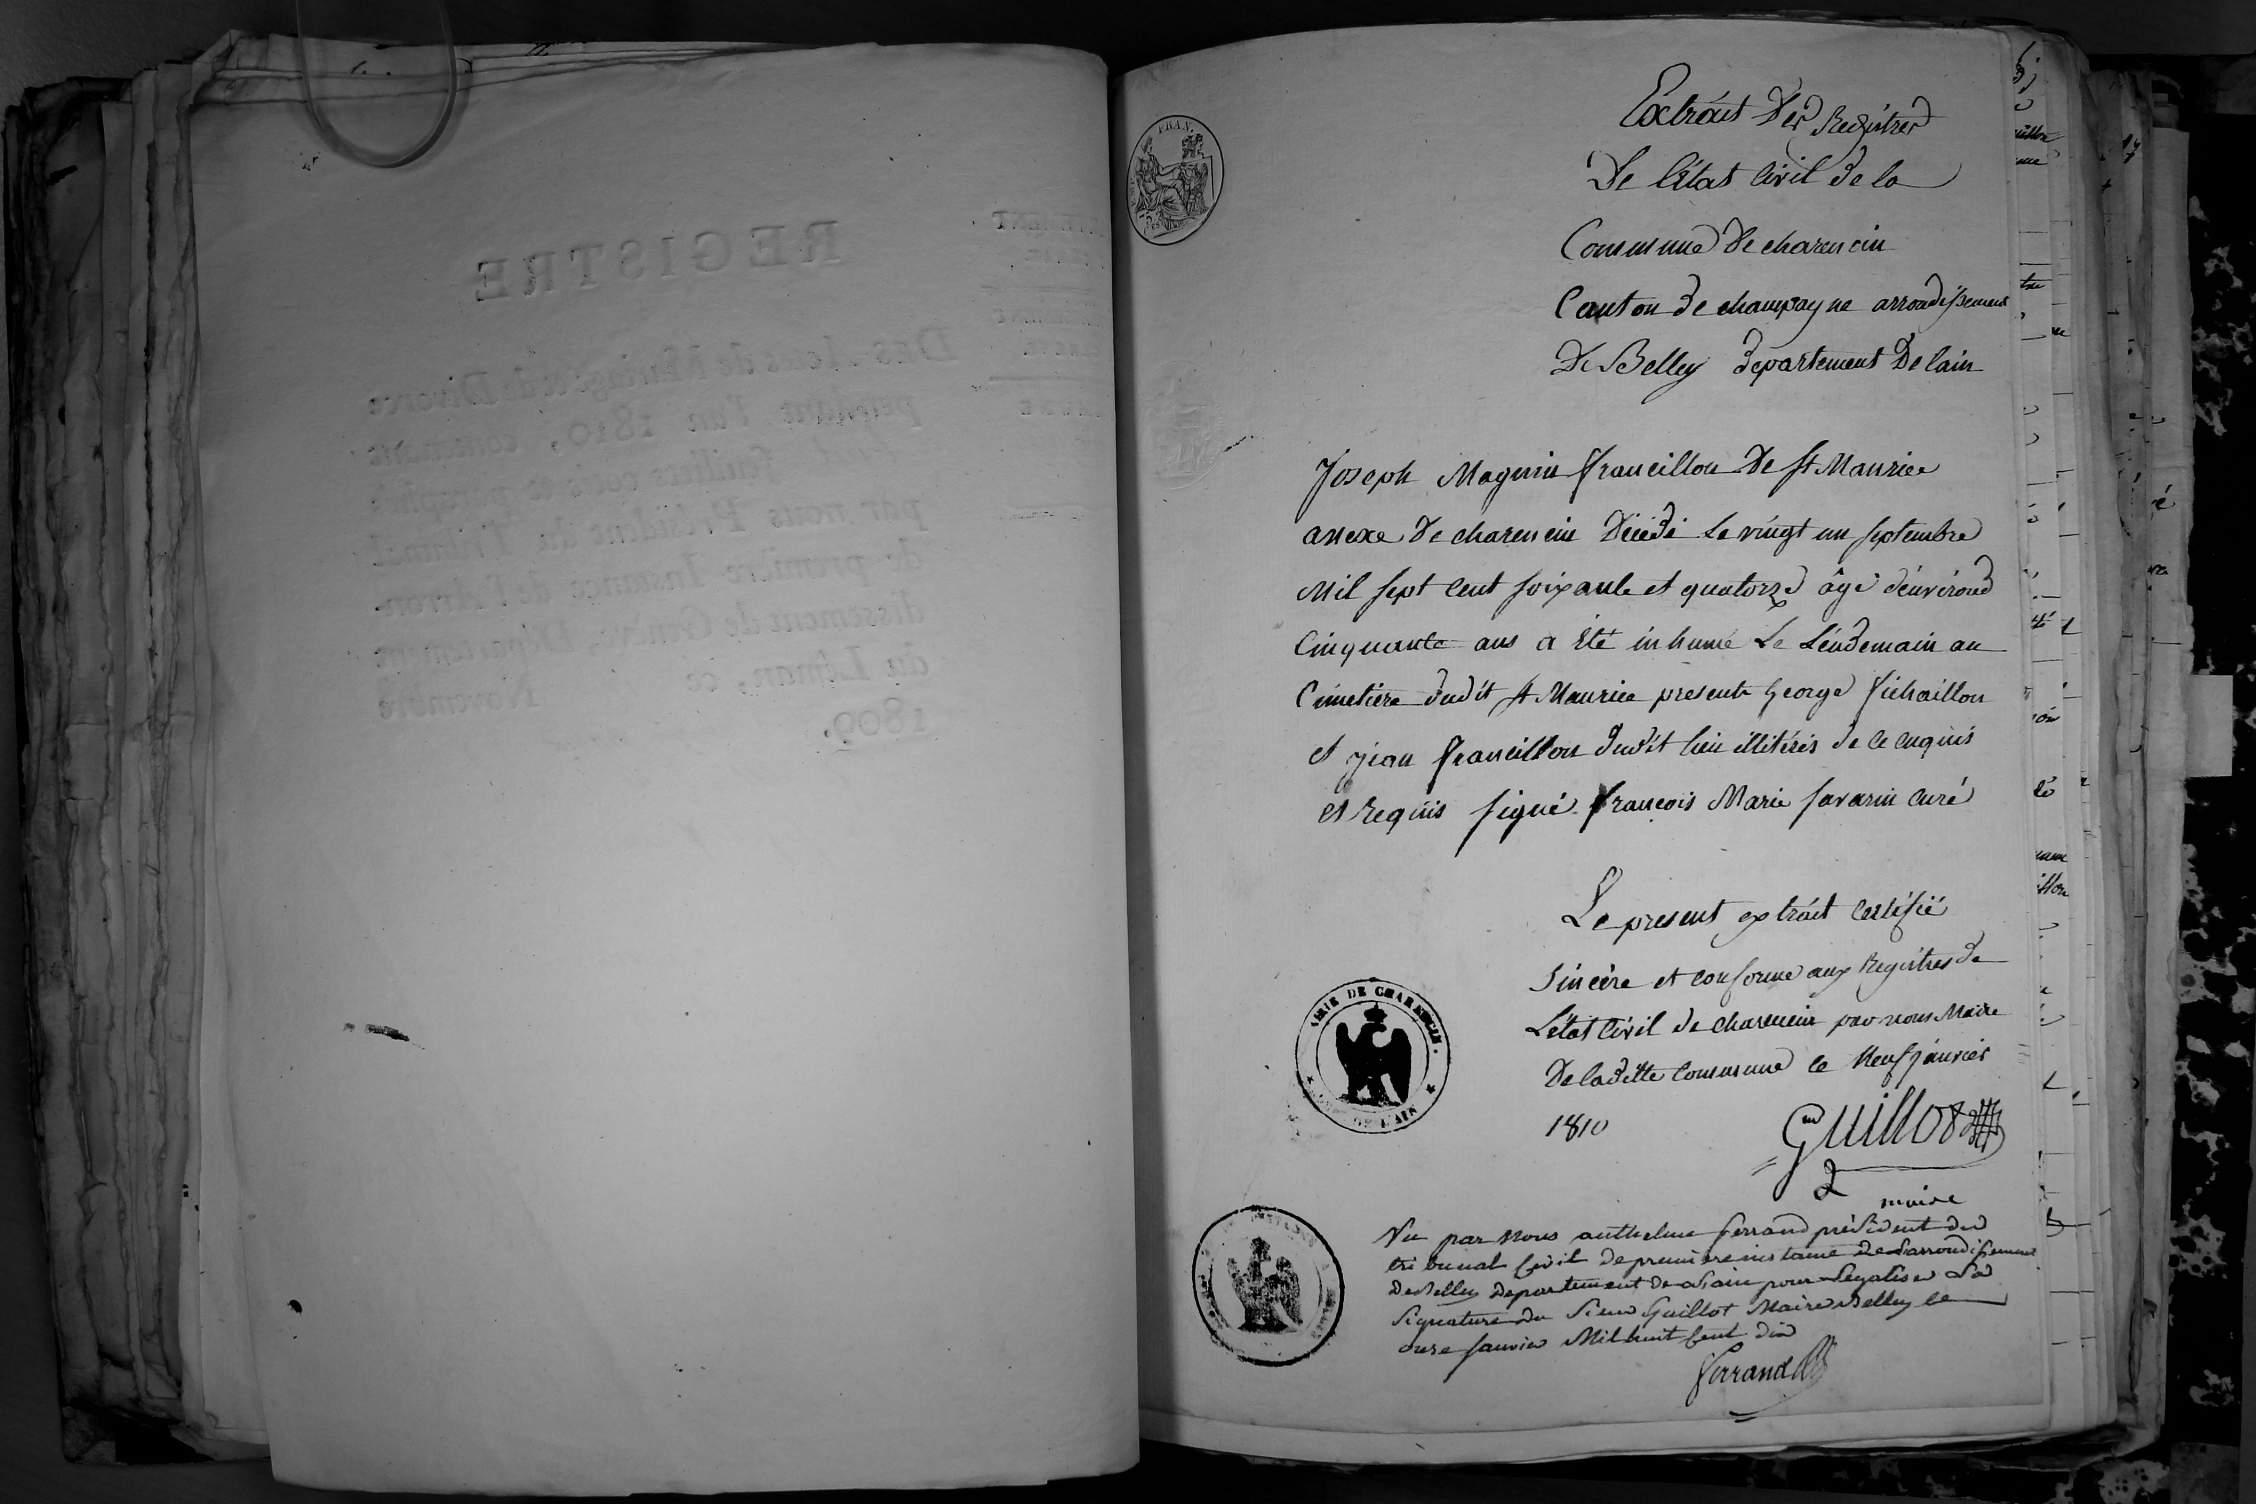 REGISTRE
Des Actes de Mariage et de Divorce
pendant l'an 1810, contenant
feuillets cotés et paraphés
par nous Président du Tribunal
de première Instance de l'Arron-
dissement de Genève, Département
du Léman, ce Novembre
1809.
FRAN.
Extrait Des Registres
De l'Etat Civil de la
Commune De charencin
Canton de champagne arrondissement
De Belley departement De lain
Joseph Magnin francillon De St Maurice
anexe De charencin Décédé le vingt un septembre
Mil sept cent soixante et quatorze âgé d'environd
Cinquante ans a Eté inhumé Le Lendemain au
Cimetiere dudit St Maurice presents George Fichaillon
et jean francillon dudit lieu illitérés de ce enquis
et requis signé françois Marie savarin curé
Le present extrait certifié
Sincère et conforme aux Registres de
L'état Civil de charencin par nous Maire
De laditte Commune ce Neuf janvier
1810
Guillot
maire
MAIRIE DE CHARENCIN.
DE L'AIN
Vu par nous anthelme ferrand président du
tribunal civil de premiere instance de larrondissement
de Belley departement de lain pour legaliser la
signature du sieur Guillot Maire Belley le
onze janvier Mil huit cent dix
ferrand